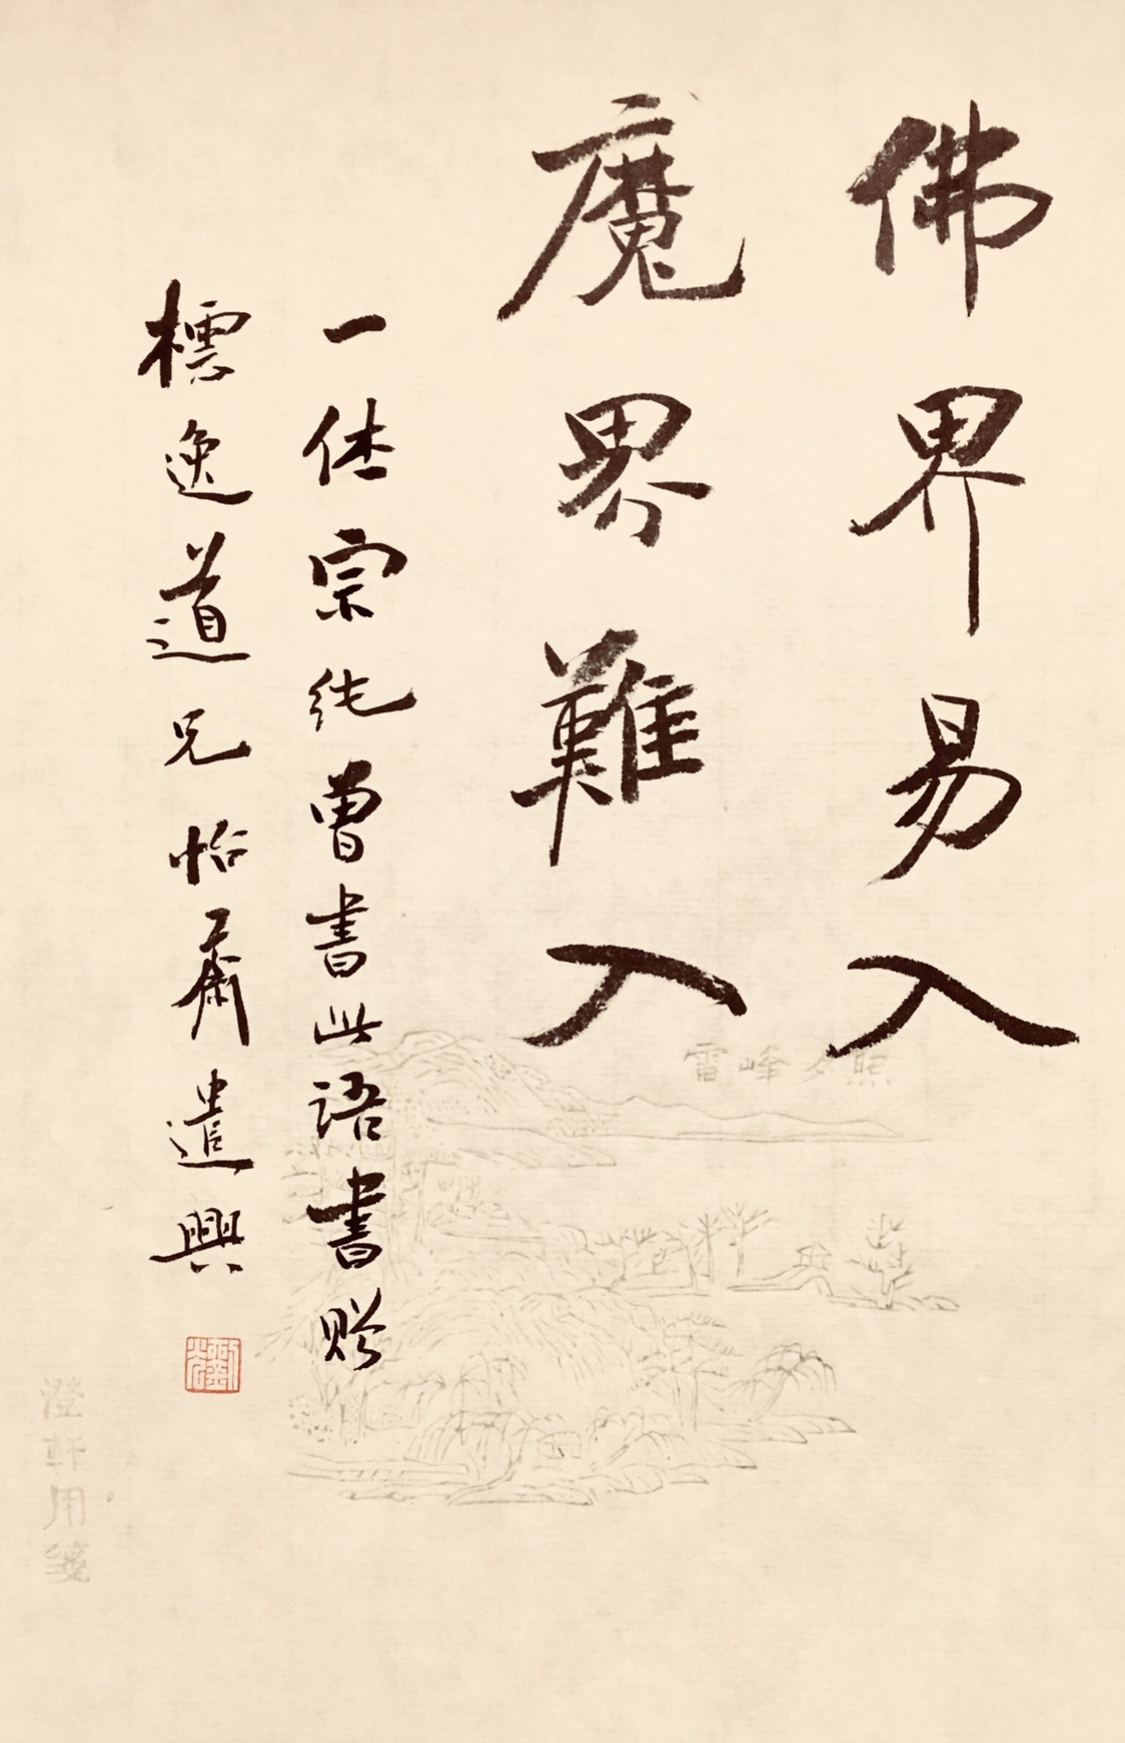 佛界易入
魔界難入
一休宗純曾書此語書贈
檽逸道兄怡齋遣興
雷峰夕照
澄軒用箋